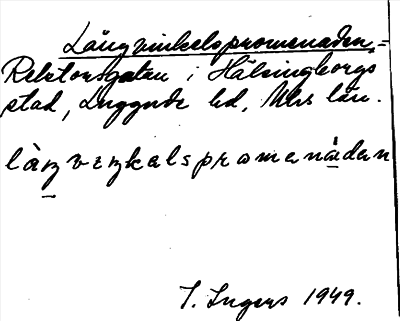 Långvinkelspromenaden =
Rektorsgatan i Hälsingborgs
stad, Luggude hd, Mlhs län.
làŋvɛŋkəlsprɷmənädən
I. Ingers 1949.